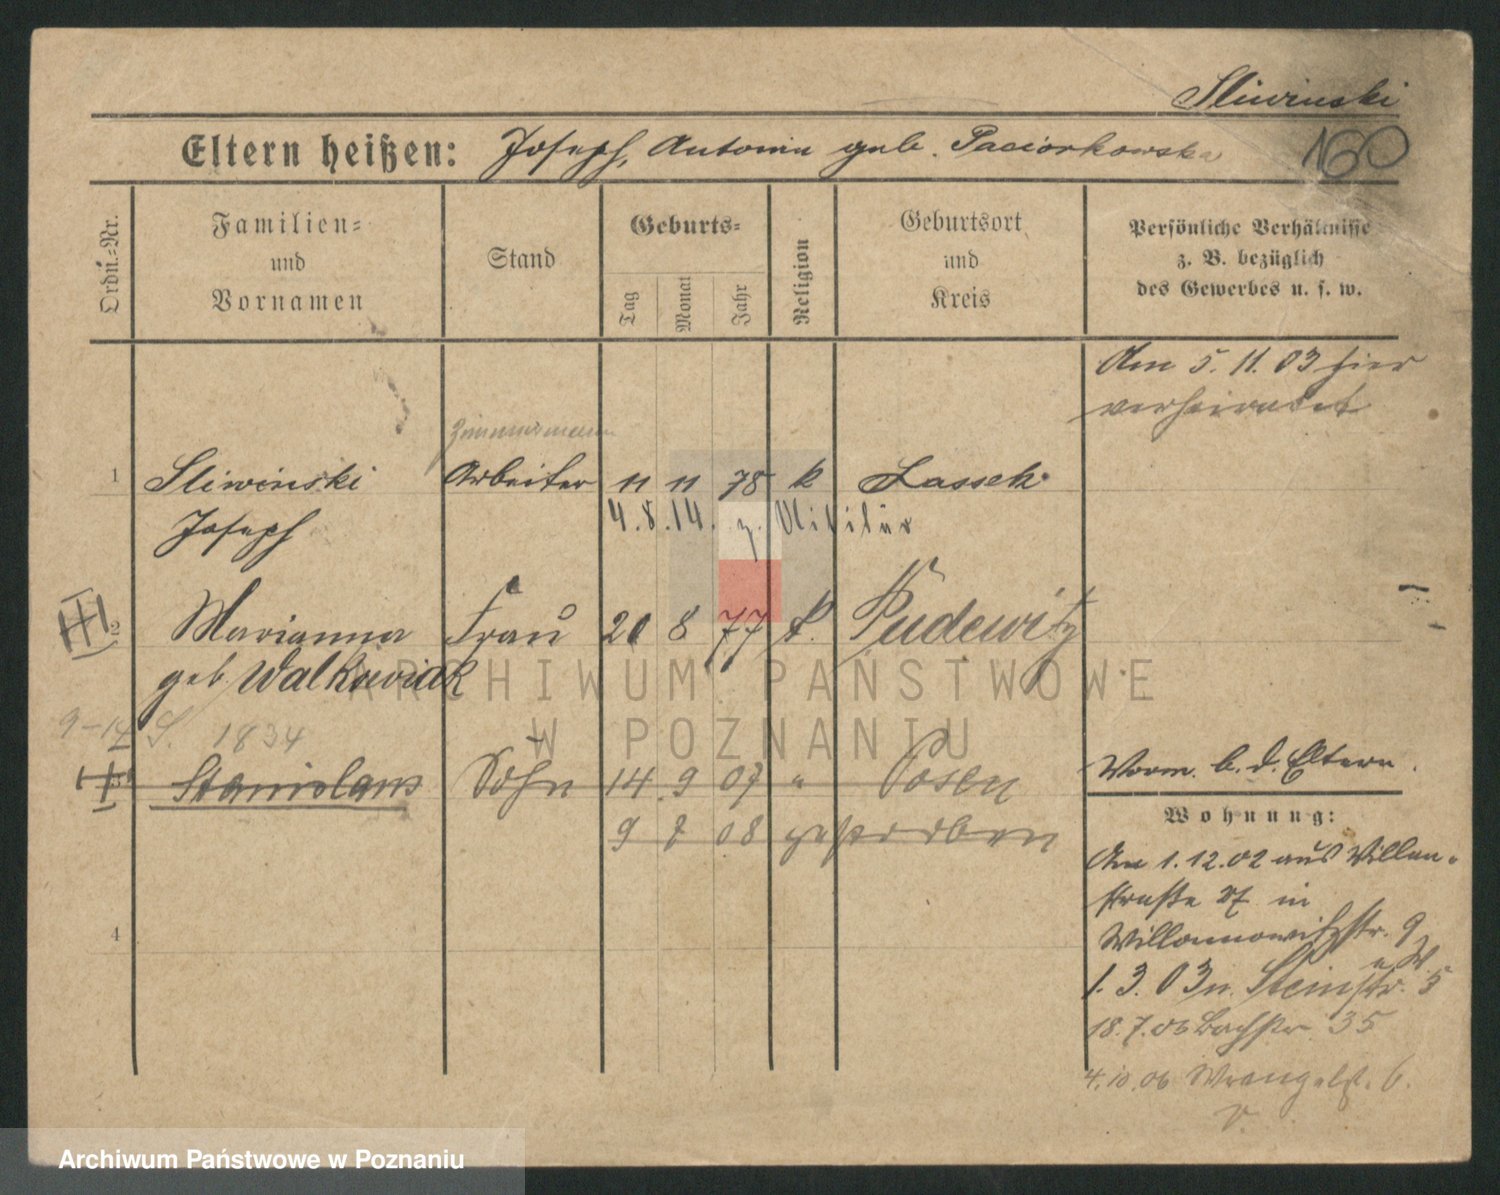 Sliwinski
Eltern heißen: Joseph, Antonie geb. Paciorkowska
160
Ordn.-Nr.
Familien-
und
Vornamen
Stand
Geburts-
Tag
Monat
Jahr
Religion
Geburtsort
und
Kreis
Persönliche Verhältnisse
z. B. bezüglich
des Gewerbes u. s. w.
Am 5. 11. 03 hier
verheiratet
Zimmermann
1 Sliwinski Arbeiter 11 11 78 k Lassek
Joseph 4. 8. 14. z. Militär
2 Marianna Frau 20 8 77 k. Pudewitz
geb. Walkowiak
ARCHIWUM PAŃSTWOWE
W POZNANIU
S. 1834
Stanislaus Sohn 14 9 07 " Posen
9 7 08 gestorben
Vorm. b. d. Eltern.
Wohnung:
Am 1. 12. 02 aus Villen-
straße in
Willamowitzstr. 9
1. 3. 03 n. Steinstr. 5
18. 7. 06 Bachstr 35
4. 10. 06 Wrangelst. 6.
4
Archiwum Państwowe w Poznaniu